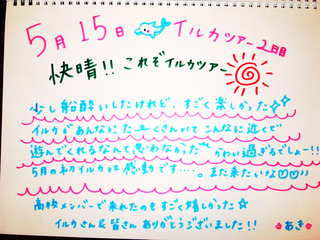 5月15日 イルカツアー2日目
快晴!! これぞイルカツアー
少し船酔いしたけれど、すごく楽しかった☆☆
イルカがあんなにたーくさんいてこんなに近くで
遊んでくれるなんて思わなかった かわい過ぎるでしょー!!
5月のイルカは感動です…。また来たいな♡♡♪
高校メンバーで来れたのもすごく嬉しかった☆
イルカさん&皆さんありがとうございました!!
あき